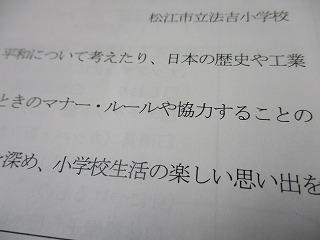 松江市立法吉小学校
平和について考えたり、日本の歴史や工業
ときのマナー・ルールや協力することの
深め、小学校生活の楽しい思い出を